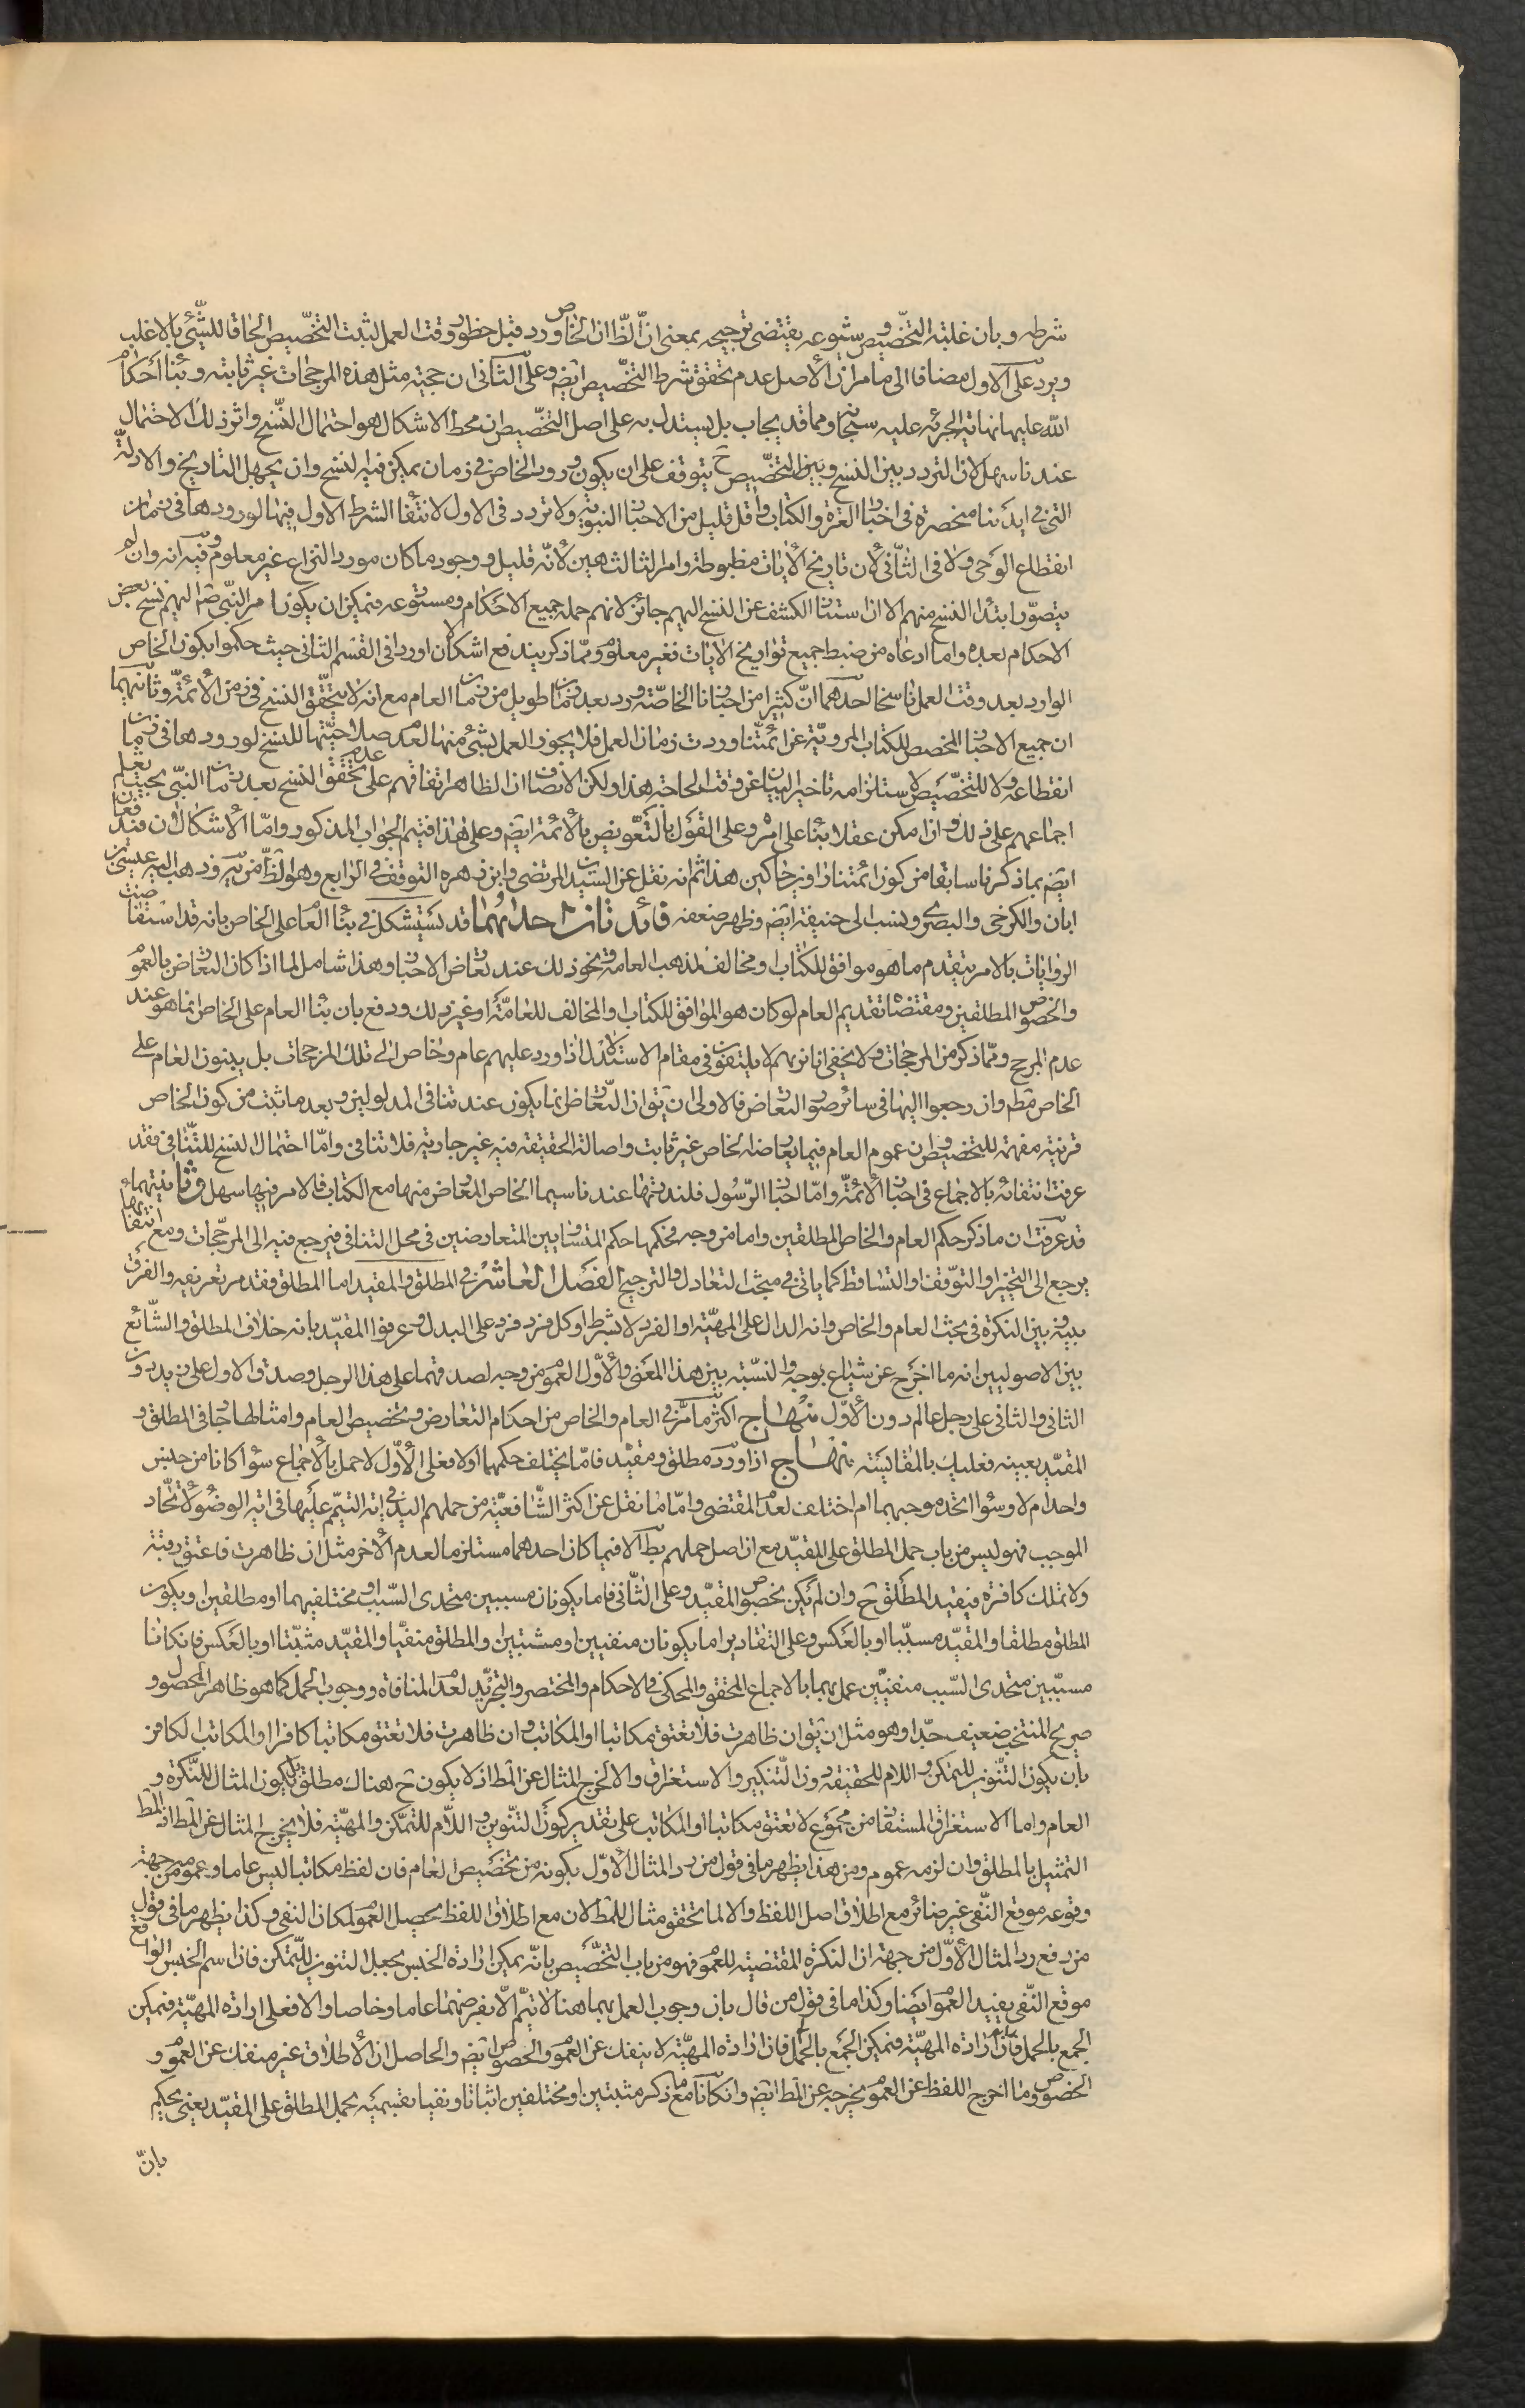 شرطه وبان غلبة التخصيص وشيوعه يقتضى ترجيحه بمعنى ان الظ ان الخاص ورد قبل حظور وقت العمل ليثبت التخصيص الحاقا للشئ بالاغلب
ويرد على الاول مضافا الى ما مر ان الاصل عدم تحقق شرط التخصيص ايض وعلى الثانى ان حجية مثل هذه المرجحات غير ثابته وبناء احكام
الله عليها نهاية الجرئه عليه سبحانه ومما قد يجاب بل يستدل به على اصل التخصيص ان محط الاشكال هو احتمال النسخ واثر ذلك الاحتمال
عندنا سهل لان التردد بين النسخ وبين التخصيص ح يتوقف على ان يكون ورود الخاص فى زمان يمكن فيه النسخ وان يجهل التاريخ والادلة
التى فى ايدينا منحصرة فى اخبار العترة والكتاب واقل قليل من الاخبار النبوية ولا تردد فى الاول لانتفاء الشرط الاول فيها لورودها فى زمان
انقطاع الوحى ولا فى الثانى لان تاريخ الايات مظبوطة وامر الثالث هين لانه قليل ووجود ما كان مورد النزاع غير معلوم وفيه انه وان لم
يتصور ابتداء النسخ منهم الا ان استناد الكشف عن النسخ اليهم جائز لانهم حملة جميع الاحكام ومستودعه فيمكن ان يكون امر النبى ص اليهم نسخ بعض
الاحكام بعده واما ادعاه من ضبط جميع تواريخ الايات فغير معلوم ومما ذكر يندفع اشكالان اوردا فى القسم الثانى حيث حكموا بكون الخاص
الوارد بعد وقت العمل ناسخا احدهما ان كثيرا من اخبارنا الخاصة ورد بعد زمان طويل من زمان العام مع انه لا يتحقق النسخ فى زمن الائمة وثانيهما
ان جميع الاخبار المخصص للكتاب المروية عن ائمتنا وردت زمان العمل فلا يجوز العمل بشئ منها لعدم صلاحيتها للنسخ لورودها فى زمان
انقطاعه ولا للتخصيص لاستلزامه تاخير البيان عن وقت الحاجة هذا ولكن الانصاف ان الظاهر اتفاقهم على عدم تحقق النسخ بعد زمان النبى بحيث يعلم
اجماعهم على ذلك وان امكن عقلا بناء على امره وعلى القول بالتعويض بالائمة ايض وعلى هذا فيتم الجواب المذكور واما الاشكالان فيندفعان
ايض بما ذكرنا سابقا من كون ائمتنا راوين حاكين هذا ثم انه نقل عن السيد المرتضى وابن زهره التوقف فى الرابع وهو الظ من وذهب اليه عيسى بن
ابان والكرخى والبصرى وينسب الى حنيفة ايض وظهر ضعفه فائدتان احدٰيهما قد يستشكل فى بناء العام على الخاص بانه قد استفاضت
الروايات بالامر بتقدم ما هو موافق للكتاب او مخالف لمذهب العامة ونحو ذلك عند تعارض الاخبار وهذا شامل لما اذا كان التعارض بالعموم
والخصوص المطلقين ومقتضاه تقديم العام لو كان هو الموافق للكتاب او المخالف للعامة او غير ذلك ودفع بان بناء العام على الخاص انما هو عند
عدم المرجح ومما ذكر من المرجحات ولا يخفى انا نريهم لا يلتفتون فى مقام الاستدلال اذا ورد عليهم عام وخاص الى تلك المرجحات بل يبنون العام على
الخاص مط وان رجعوا اليها فى سائر صور التعارض فالاولى ان يق ان التعارض انما يكون عند تنافى المدلولين وبعد ما ثبت من كون الخاص
قرنية مفهمة للتخصيص وان عموم العام فيما يعارضه الخاص غير ثابت واصالة الحقيقة فيه غير جارية فلا تنافى واما احتمال النسخ للتنافى فقد
عرفت انتفائه بالاجماع فى اخبار الائمة واما اخبار الرسول فلندرتها عندنا سيما الخاص المعارض منها مع الكتاب فالامر فيها سهل وثانيتهما
قد عرفت ان ما ذكر حكم العام والخاص المطلقين واما من وجه فحكمها حكم المتساويين المتعارضين فى محل التنافى فيرجع فيه الى المرجحات ومع انتفائها
يرجع الى التخيير او التوقف او التساقط كما ياتى فى مبحث التعادل والترجيح الفصل العاشر فى المطلق والمقيد اما المطلق فقد مر تعريفه والفرق
بينه وبين النكرة فى بحث العام والخاص وانه الدال على المهية او الفرد لا بشرط او كل فرد فرد على البدل وعرفوا المقيد بانه خلاف المطلق والشائع
بين الاصوليين انه ما اخرج عن شياع بوجه والنسبة بين هذا المعنى والاول العموم من وجه لصدقهما على هذا الرجل وصدق الاول على زيد دون
الثانى والثانى على رجل عالم دون الاول منهاج اكثر ما مر فى العام والخاص من احكام التعارض وتخصيص العام وامثالها جار فى المطلق و
المقيد بعينه فعليك بالمقايسة منهاج اذا ورد مطلق ومقيد فاما يختلف حكمهما اولا فعلى الاول لا حمل بالاجماع سواء كانا من جنس
واحد ام لا وسواء اتحد موجبهما ام اختلف لعدم المقتضى واما ما نقل عن اكثر الشافعية من حملهم اليد فى اية التيمم عليها فى اية الوضوء لاتحاد
الموجب فهو ليس من باب حمل المطلق على المقيد مع ان اصل حملهم بط الا فيما كان احدهما مستلزما لعدم الاخر مثل ان ظاهرت فاعتق رقبة
ولا تملك كافرة فيقيد المطلق ح وان لم يكن بخصوص المقيد وعلى الثانى فاما يكونان مسببين متحدى السبب او مختلفيهما او مطلقين او يكون
المطلق مطلقا والمقيد مسببا او بالعكس وعلى التقادير اما يكونان منفيين او مثبتين او المطلق منفيا والمقيد مثبتا او بالعكس فان كانا
مسببين متحدى السبب منفيين عمل بهما بالاجماع المحقق والمحكى فى الاحكام والمختصر والتجريد لعدم المنافاة ووجوب الحمل كما هو ظاهر المحصول و
صريح المنتخب ضعيف جدا وهو مثل ان يق ان ظاهرت فلا تعتق مكاتبا او المكاتب وان ظاهرت فلا تعتق مكاتبا كافرا او المكاتب الكافر
بان يكون التنوين للتمكن واللام للحقيقة دون التنكير والاستغراق والا لخرج المثال عن المط اذ لا يكون ح هناك مطلق بل يكون المثال للنكرة و
العام واما الاستغراق المستفاد من مجموع لا تعتق مكاتبا او المكاتب على تقدير كون التنوين واللام للتمكن والمهية فلا يخرج المثال عن المط اذ المط
التمثيل بالمطلق وان لزمه عموم ومن هذا يظهر ما فى قول من رد المثال الاول بكونه من تخصيص العام فان لفظ مكاتبا ليس عاما وعمومه من جهة
وقوعه موقع النفى غير ضائر مع اطلاق اصل اللفظ والا لما تحقق مثال للمط لان مع اطلاق اللفظ يحصل العموم لمكان النفى وكذا يظهر ما فى قول
من دفع رد المثال الاول من جهة ان النكرة المقتضية للعموم فهو من باب التخصيص بانه يمكن ارادة الجنس بجعل التنوين للتمكن فان اسم الجنس الواقع
موقع النفى يفيد العموم ايضا وكذا ما فى قول من قال بان وجوب العمل بهما هنا لا يتم الا بفرضهما عاما وخاصا والا فعلى ارادة المهية فيمكن
الجمع بالحمل فان ارادة المهية فيمكن الجمع بالحمل فان ارادة المهية لا ينفك عن العموم والخصوص ايض والحاصل ان الاطلاق غير منفك عن العموم و
الخصوص وما اخرج اللفظ عن العموم يخرجه عن المط ايض وان كانا مع ما ذكر مثبتين او مختلفين اثباتا ونفيا بقسميه يحمل المطلق على المقيد يعنى يحكم
بان